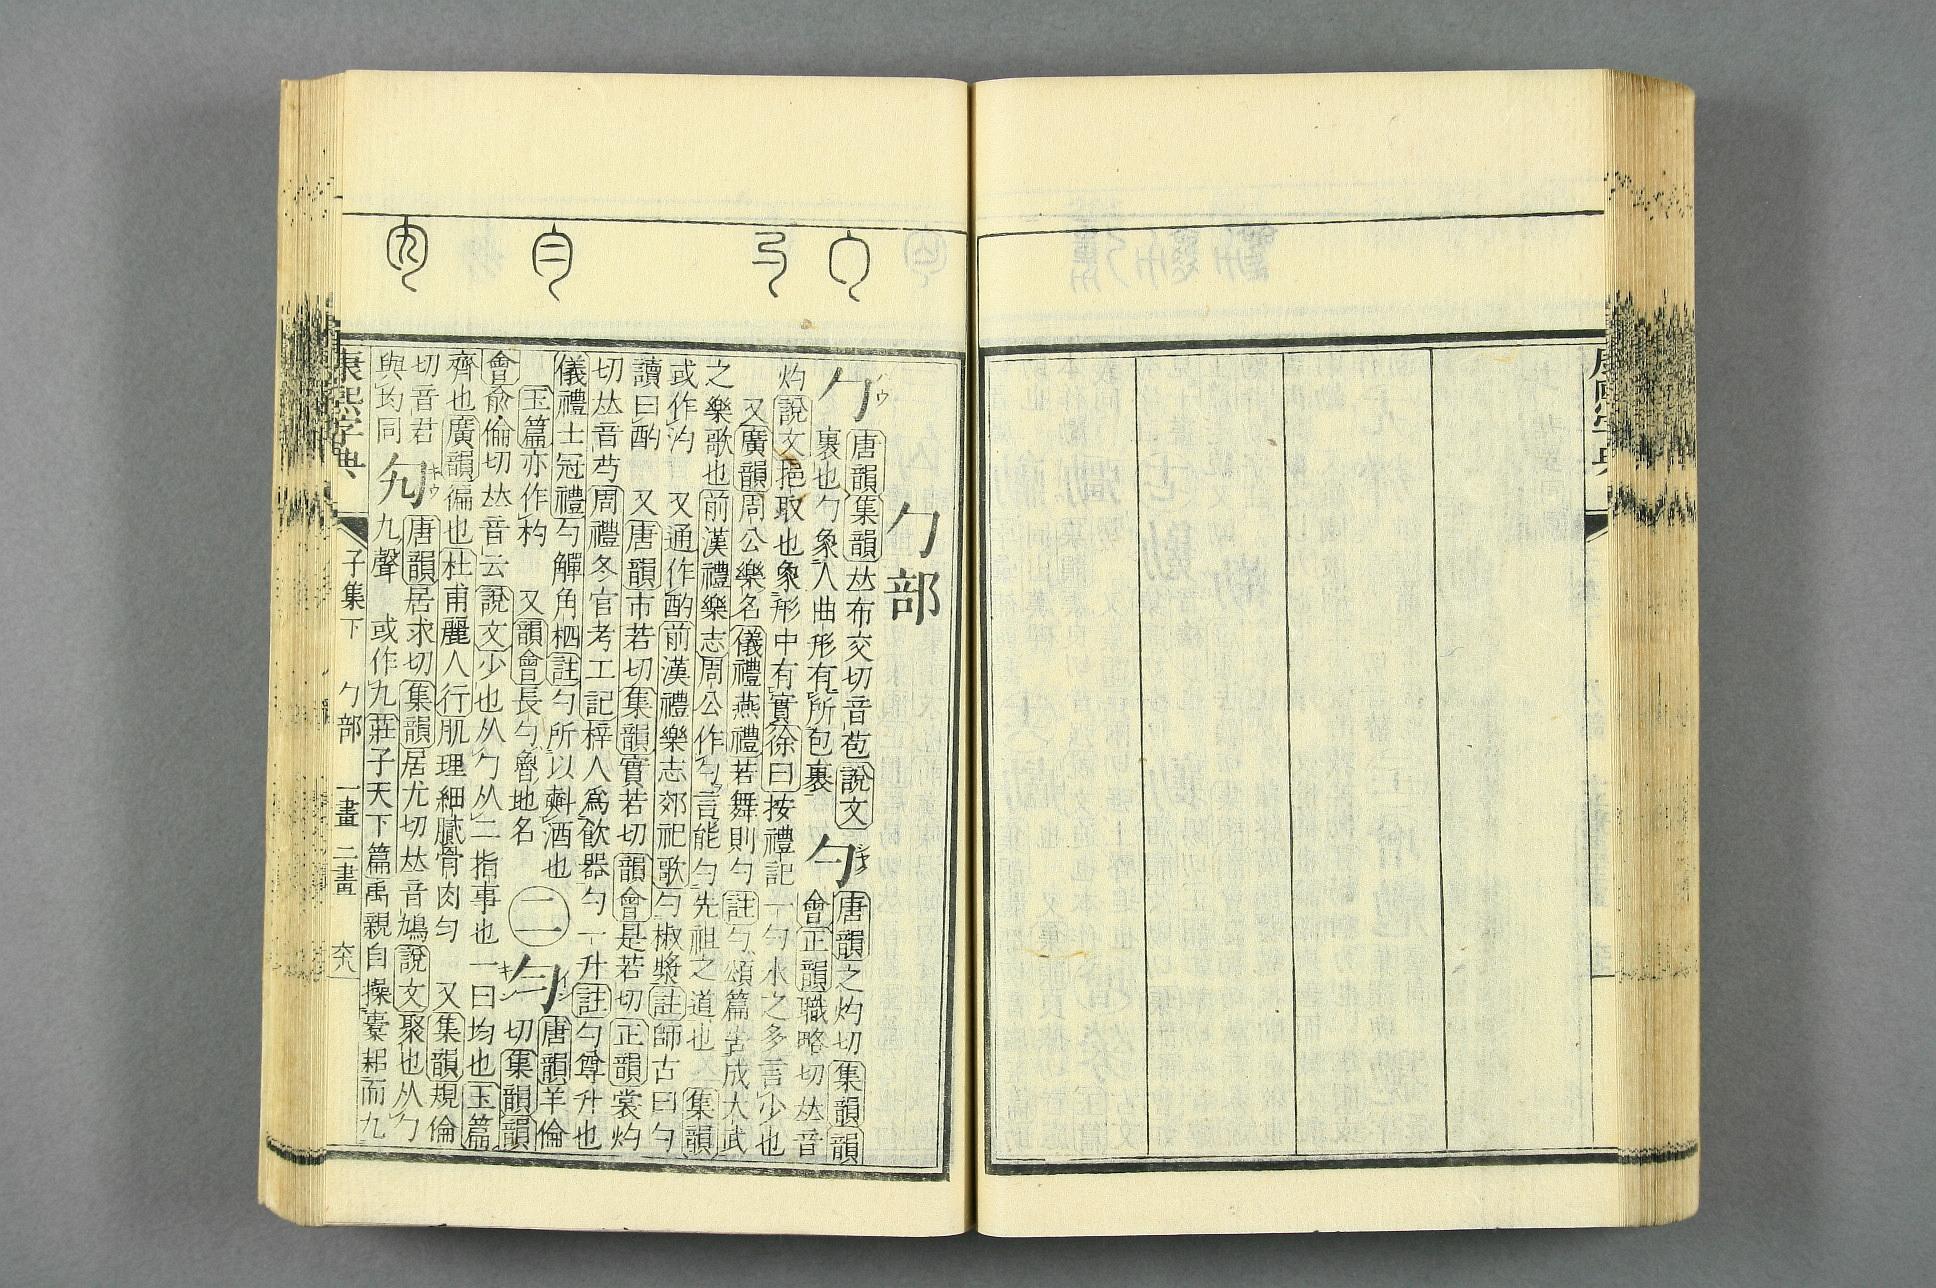 勹部
勹 ハウ
唐韻集韻𠀤布交切音苞說文
裹也勹象人曲形有所包裹
勺 シャク
唐韻之灼切集韻韻
會正韻職略切𠀤音
灼說文挹取也象形中有實徐曰按禮記一勺水之多言少也
又廣韻周公樂名儀禮燕禮若舞則勺註勺頌篇吿成大武
之樂歌也前漢禮樂志周公作勺勺言能勺先祖之道也 集韻
或作汋 又通作酌前漢禮樂志郊祀歌勺椒漿註師古曰勺
讀曰酌 又唐韻市若切集韻實若切韻會是若切正韻裳灼
切𠀤音芍周禮冬官考工記梓人爲飮器勺一升註勺尊升也
儀禮士冠禮勺觶角柶註勺所以㪺酒也
玉篇亦作杓 又韻會長勺魯地名
二
匀 イン キン
唐韻羊倫
切集韻韻
會兪倫切𠀤音云說文少也从勹从二指事也一曰均也玉篇
齊也廣韻徧也杜甫麗人行肌理細膩骨肉匀 又集韻規倫
切音君
與均同
勼 キウ
唐韻居求切集韻居尤切𠀤音鳩說文聚也从勹
九聲 或作九莊子天下篇禹親自操橐耜而九
康熙字典 子集下 勹部 一畫 二畫 六八
康熙字典